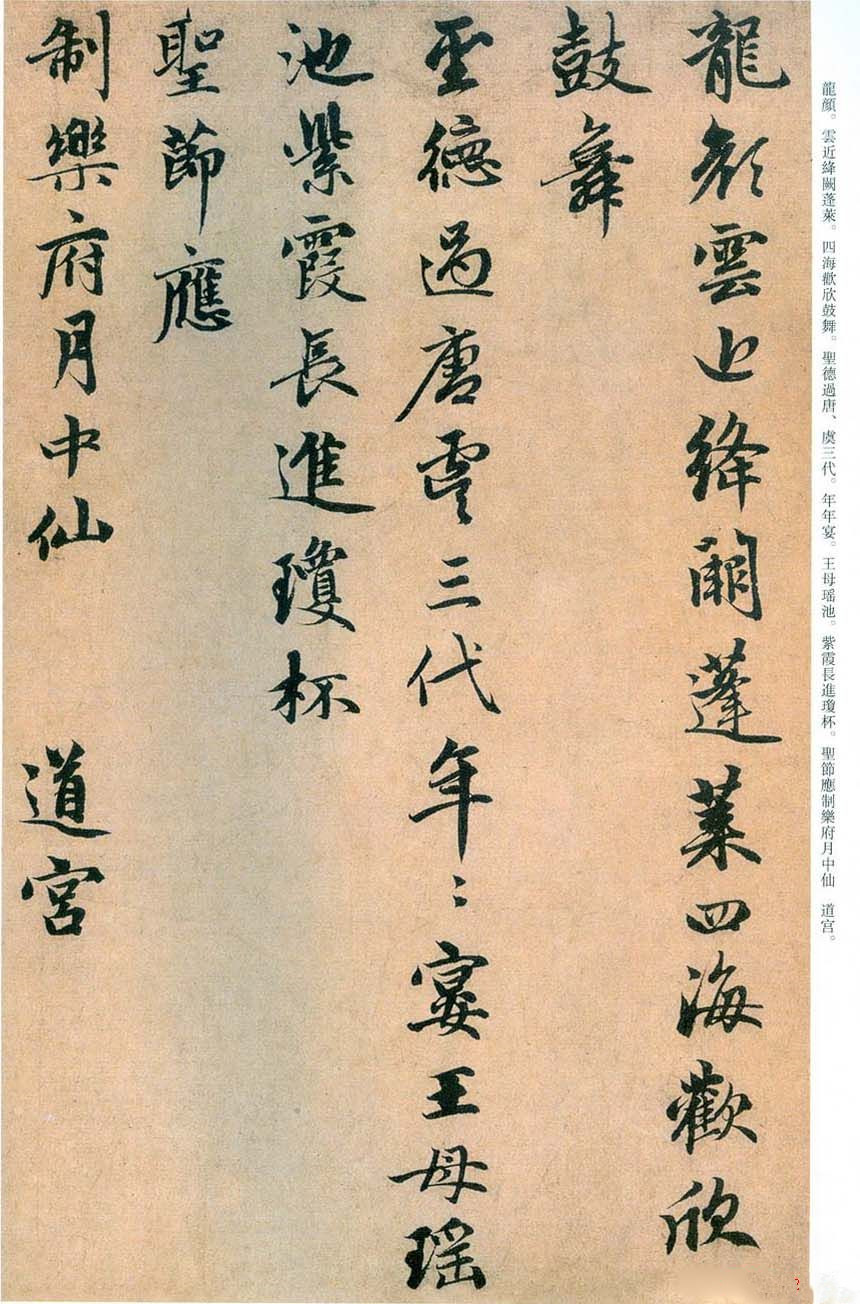 龍顔。雲近絳闕蓬萊。四海歡欣鼓舞。聖德過唐、虞三代。年年宴。王母瑶池。紫霞長進瓊杯。聖節應制樂府月中仙　道宫。
龍顔雲近絳闕蓬萊四海歡欣
鼓舞
聖德過唐虞三代年〻宴王母瑶
池紫霞長進瓊杯
聖節應
制樂府月中仙　道宫
?